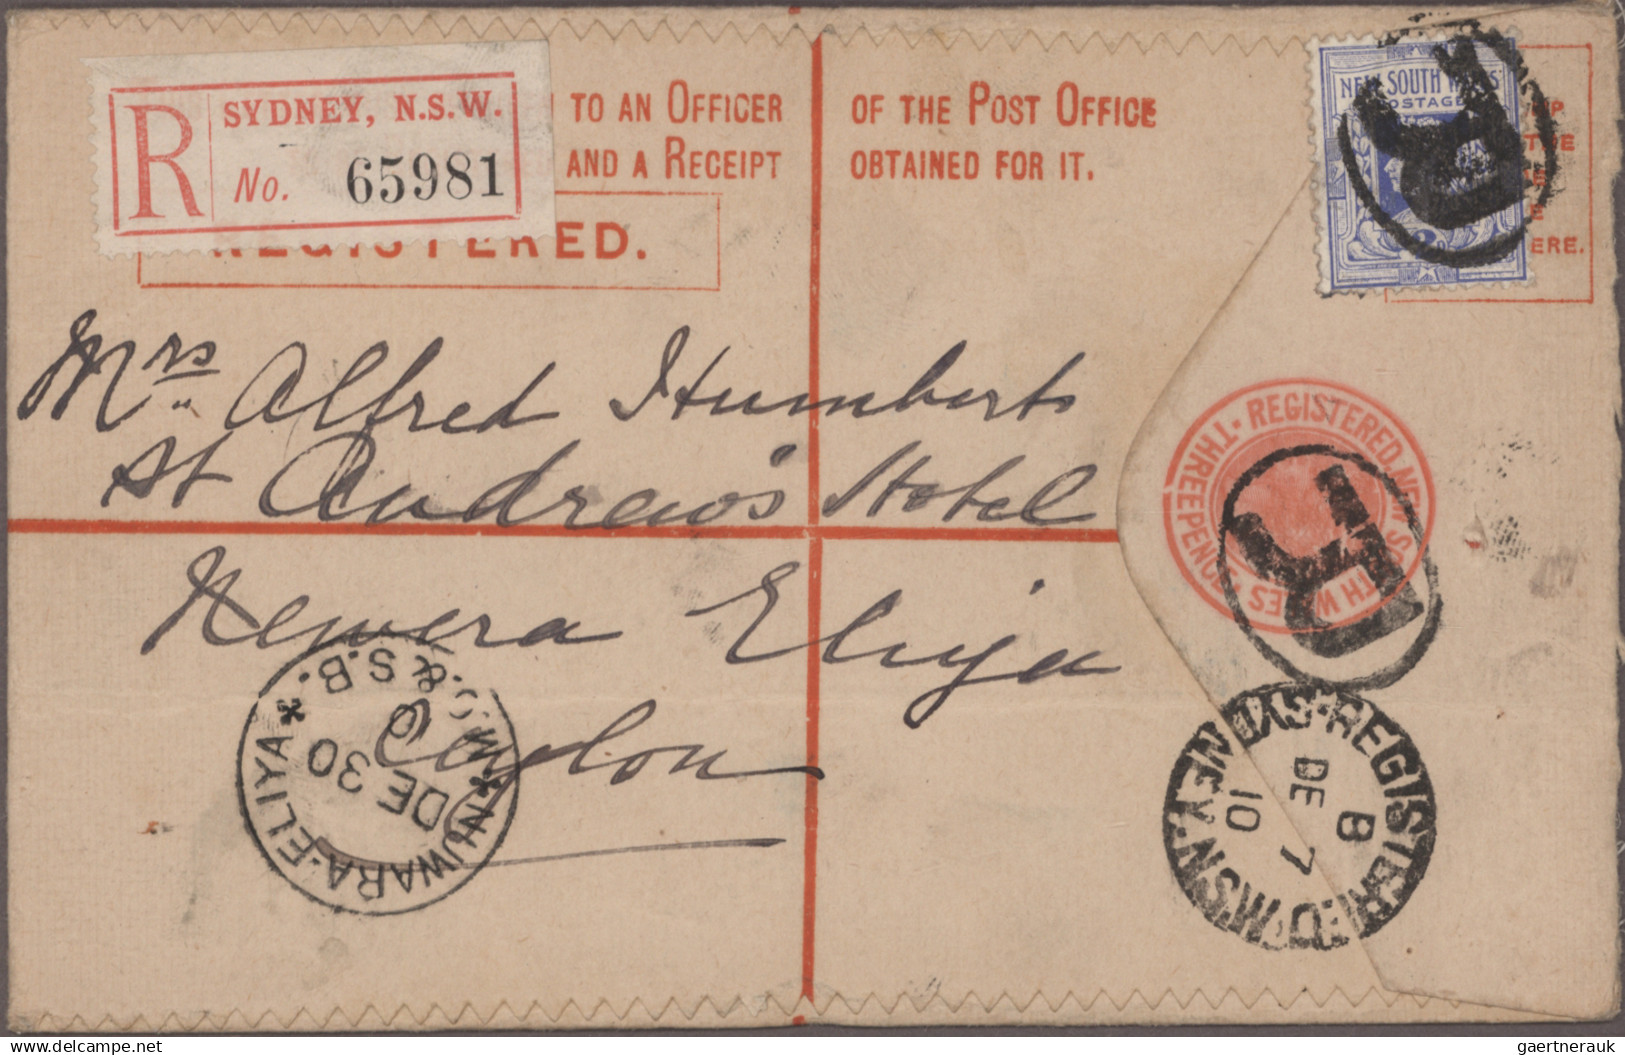 R
SYDNEY, N.S.W.
No. 65981
TO AN OFFICER OF THE POST OFFICE
AND A RECEIPT OBTAINED FOR IT.
REGISTERED.
NEW SOUTH WALES
POSTAGE
R
ERE.
Mrs Alfred Humberts
St Andrew's Hotel
Newera Eliya
Ceylon
REGISTERED NEW SOUTH WALES
THREEPENCE
R
NUWARA-ELIYA
M.O. & S.B.
DE 30
REGISTERED SYDNEY N.S.W
8
DE 7
10
www.delcampe.net
gaertnerauk